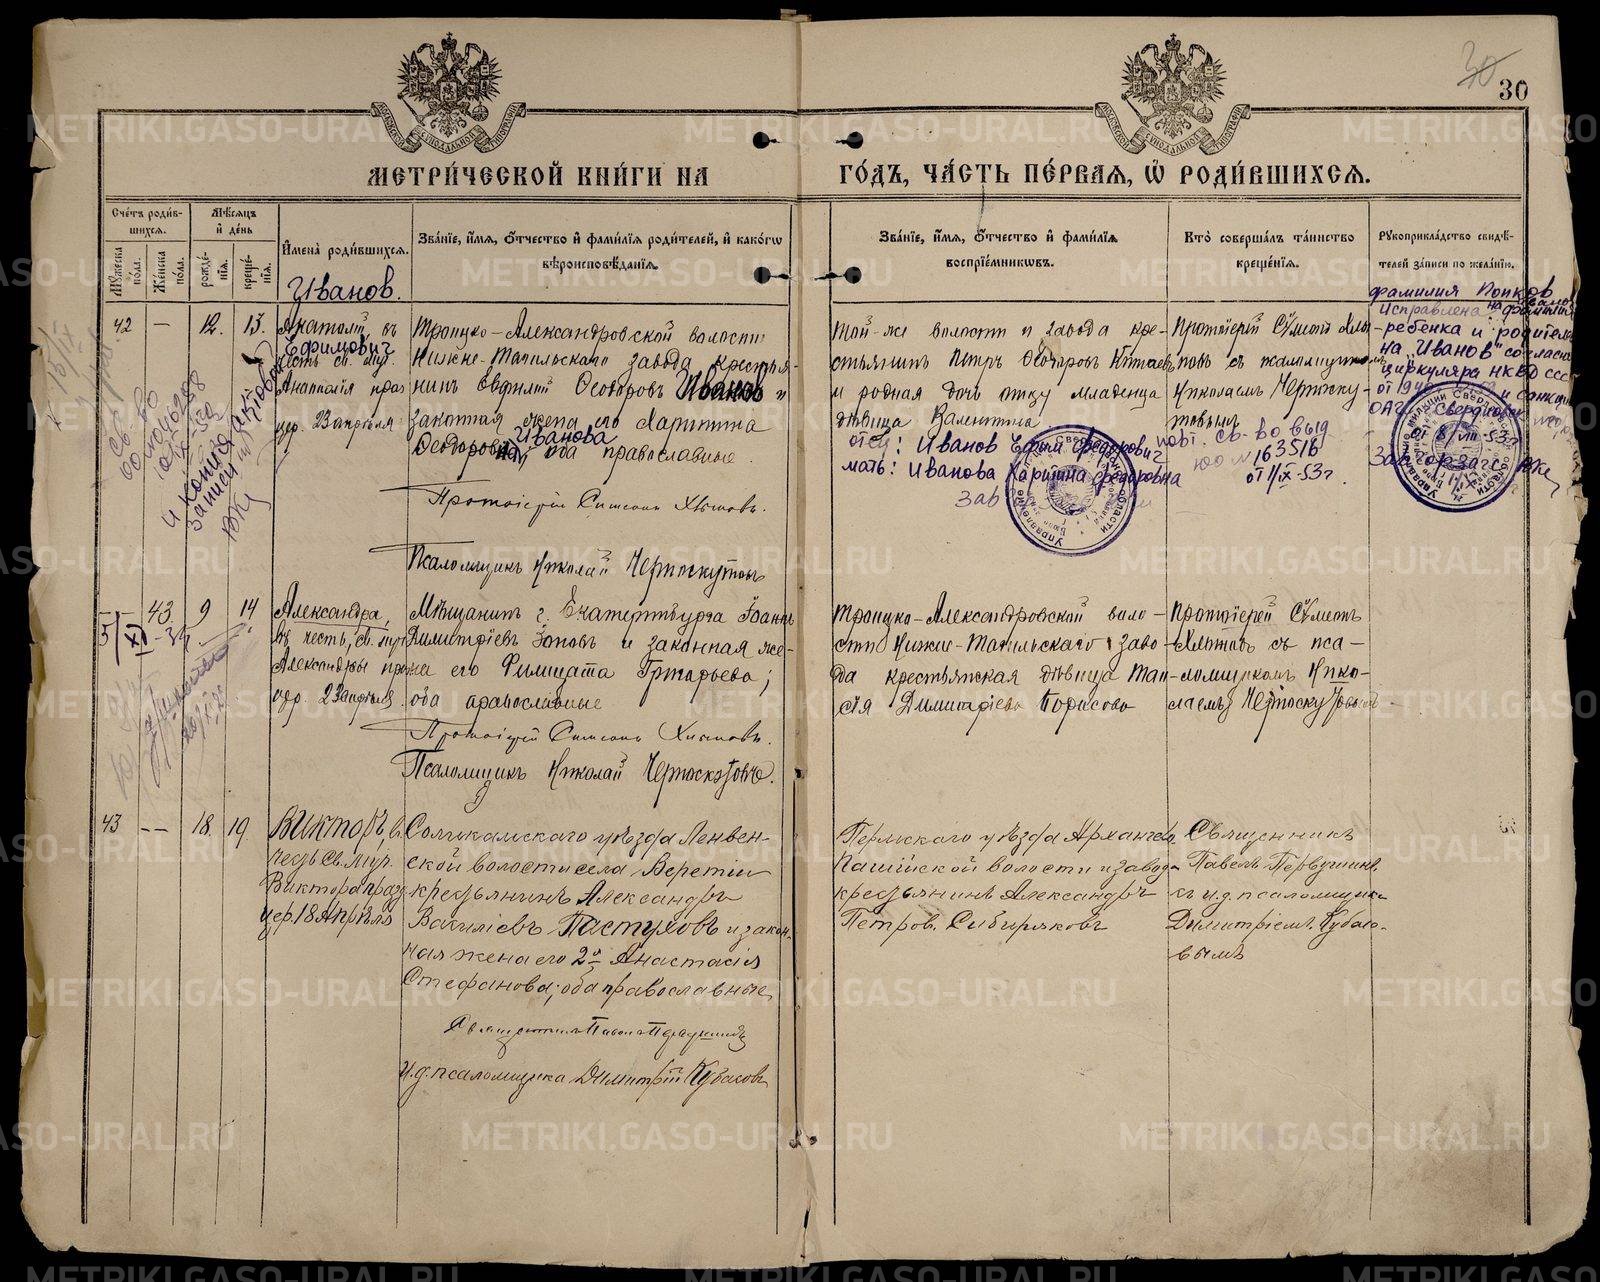 30
30
МЕТРИ́ЧЕСКОЙ КНИ́ГИ НА ГО́ДЪ, ЧА́СТЬ ПЕ́РВАЯ, Ѡ РОДИ́ВШИХСЯ.
Сче́тъ роди́в-
шихся.
Му́жеска пола.
Же́нска пола.
Мѣ́сяцъ
и́ де́нь
рожде́-
нїя.
креще́-
нїя.
И҆мена̀ роди́вшихся.
Зва́нїе, и҆́мя, ѻ҆́тчество и҆ фами́лїя роди́телей, и҆ како́гѡ
вѣроисповѣ́данїя.
Зва́нїе, и҆́мя, ѻ҆́тчество и҆ фами́лїя
воспрїе́мниковъ.
Кто̀ соверша́лъ та́инство
креще́нїя.
Рукоприкла́дство свидѣ́-
телей за́писи по жела́нїю.
Иванов.
42
—
12.
13.
Анатолій, въ
Ефимович
честь св. муч.
Анатолія праз
нуе. 23 апрѣля
Троицко-Александровской волости
Нижне-Тагильскаго завода крестья-
нинъ Евфимій Ѳеодоровъ Иванов и
законная жена его Харитина
Иванова
Ѳеодорова, оба православные
Протоіерей Симеонъ Хлыновъ.
Псаломщикъ Николай Черноскутовъ
Той-же волости и завода кре-
стьянинъ Петръ Ѳеодоровъ
и родная дочь отцу младенца
дѣвица Валентина
отец: Иванов Ефим Федорович
мать: Иванова Харитина Федоровна
Зав
Протоіерей Сѵмеонъ Хлы-
новъ съ псаломщикомъ
Николаемъ Черноску-
товымъ
повт. св-во выд
юо № 163516
от 11/IX-53г.
фамилия Попков
исправлена на фамилии
ребенка и родителей
на "Иванов" согласно
циркуляра НКВД СССР
от 1946 и санкции
ОАГС Свердловск
от 8/VIII-53г
Зав горзагс
43
9
14
Александра,
въ честь св. муч.
Александры праз
нуе. 23 апрѣля
Мѣщанинъ г. Екатеринбурга Іоаннъ
Димитріевъ Поповъ и законная же-
на его Филицата Григорьева;
оба православные
Протоіерей Симеонъ Хлыновъ.
Псаломщикъ Николай Черноскутовъ.
Троицко-Александровской воло-
сти Нижне-Тагильскаго заво-
да крестьянская дѣвица Таи-
сія Димитріева Борисова
Протоіерей Сѵмеонъ
Хлыновъ съ пса-
ломщикомъ Нико-
лаемъ Черноскутовымъ
43
--
18.
19.
Викторъ, въ
честь св. муч.
Виктора празд
нуе. 18 Апрѣля
Соликамскаго уѣзда Ленвен-
ской волости села Веретіи
крестьянинъ Александръ
Василіевъ Пастуховъ и закон-
ная жена его 2я Анастасія
Стефанова; оба православные
Священникъ Павелъ Первушинъ
И.д. псаломщика Димитрій Кубасовъ
Пермскаго уѣзда Архангело-
Пашійской волости и завода
крестьянинъ Александръ
Петров. Сибиряковъ
Священникъ
Павелъ Первушинъ
съ и.д. псаломщика
Димитріемъ Кубасо-
вымъ
METRIKI.GASO-URAL.RU